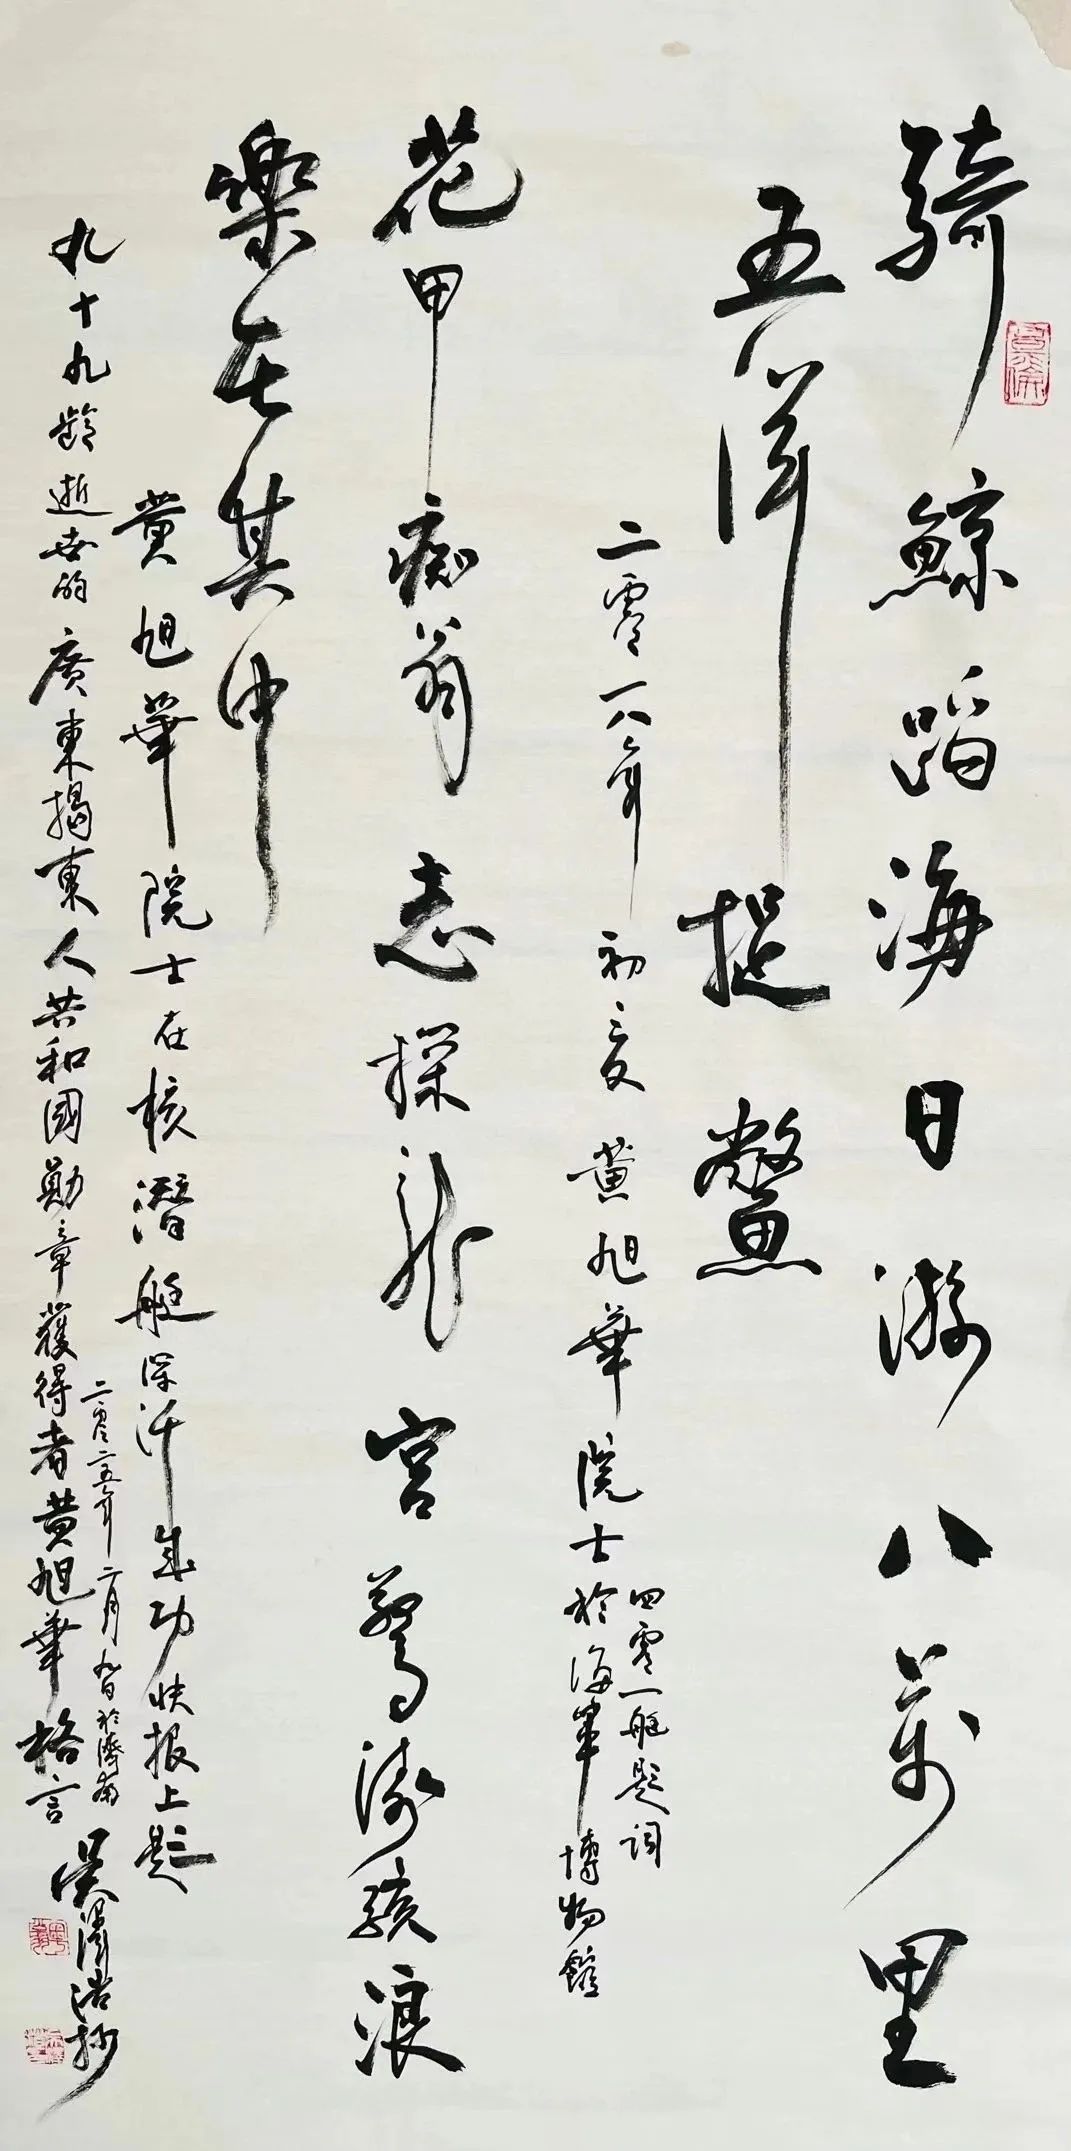 騎鯨蹈海日游八萬里
五洋捉鱉
二零一八年初夏黃旭華院士於海軍博物館
四零一艇題詞
花甲痴翁志探龍宮驚濤駭浪
樂在其中
黃旭華院士在核潛艇深成功快報上題
九十九齡逝世的廣東揭東人共和國勛章獲得者黃旭華格言
二零二五年二月九日於濟南
吳澤浩抄